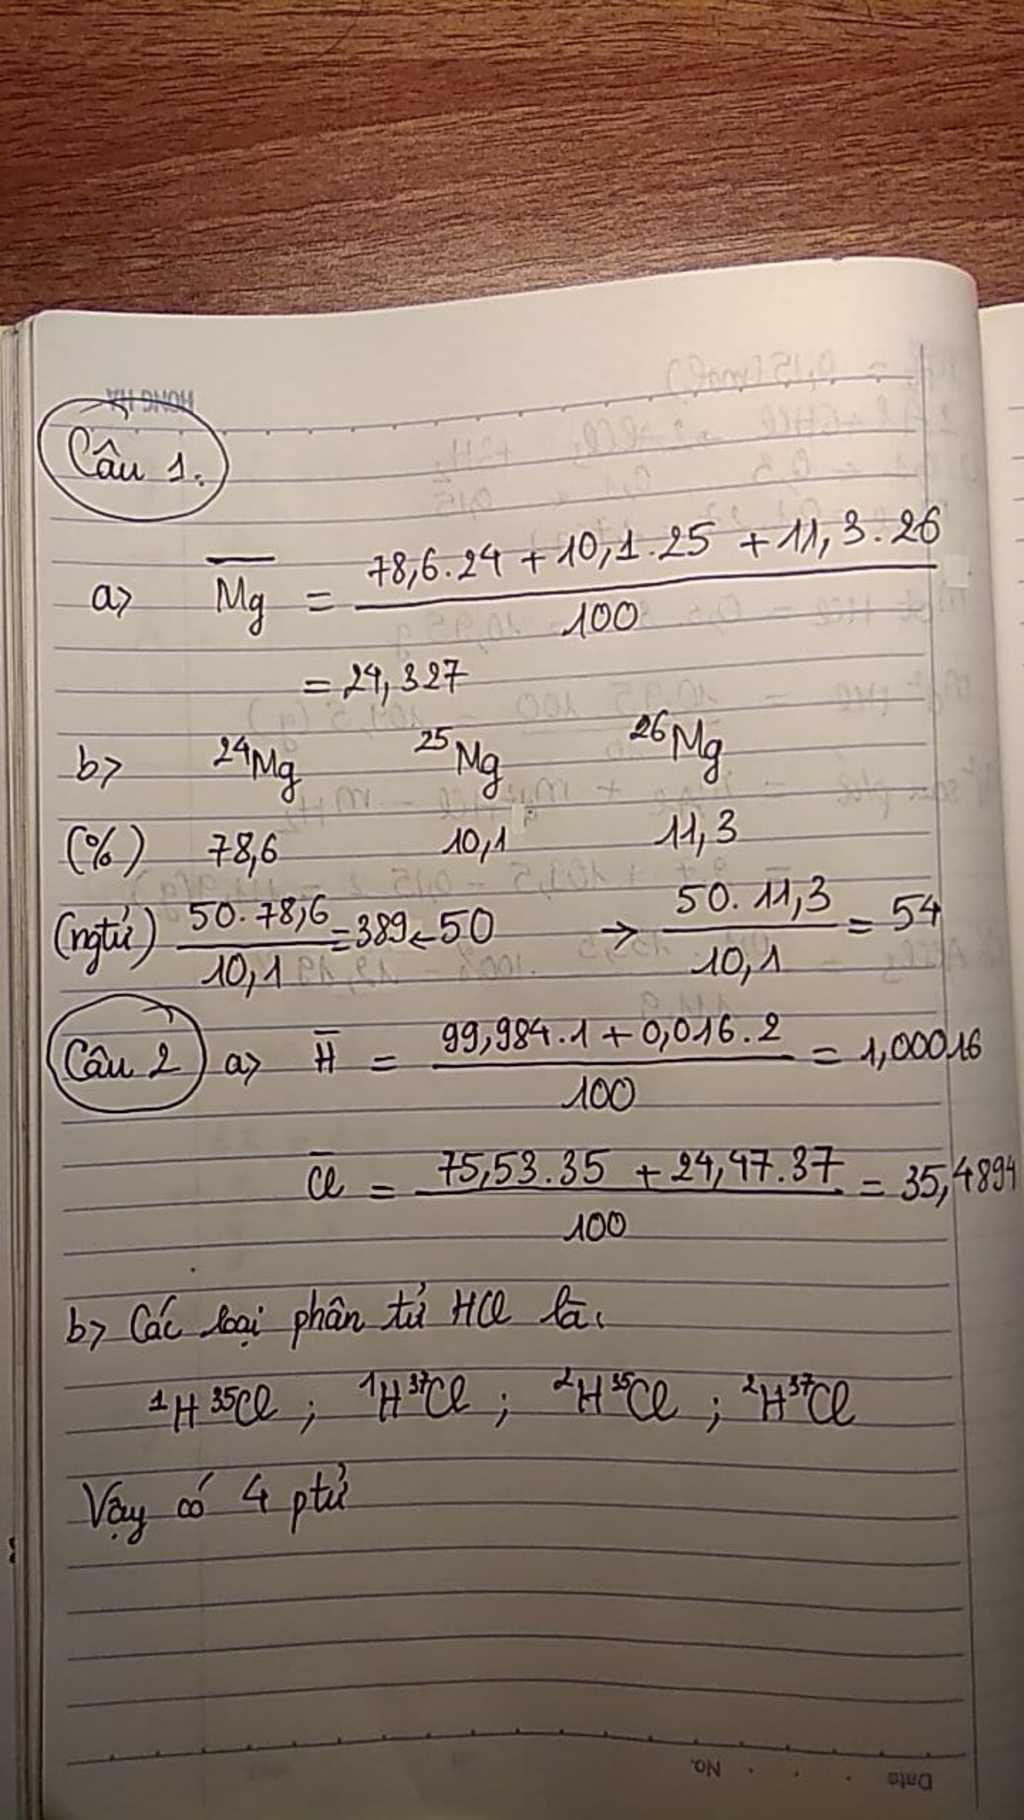 HONG HA
Câu 1.
a> M̅g̅ = (78,6.24 + 10,1.25 + 11,3.26) / 100
= 24,327
b> ²⁴Mg ²⁵Mg ²⁶Mg
(%) 78,6 10,1 11,3
(ngtử) 50.78,6 / 10,1 = 389 ← 50 → 50.11,3 / 10,1 = 54
Câu 2 a> H̅ = (99,984.1 + 0,016.2) / 100 = 1,00016
C̅l̅ = (75,53.35 + 24,47.37) / 100 = 35,4894
b> Các loại phân tử HCl là:
¹H ³⁵Cl ; ¹H ³⁷Cl ; ²H ³⁵Cl ; ²H ³⁷Cl
Vậy có 4 ptử
No. Date